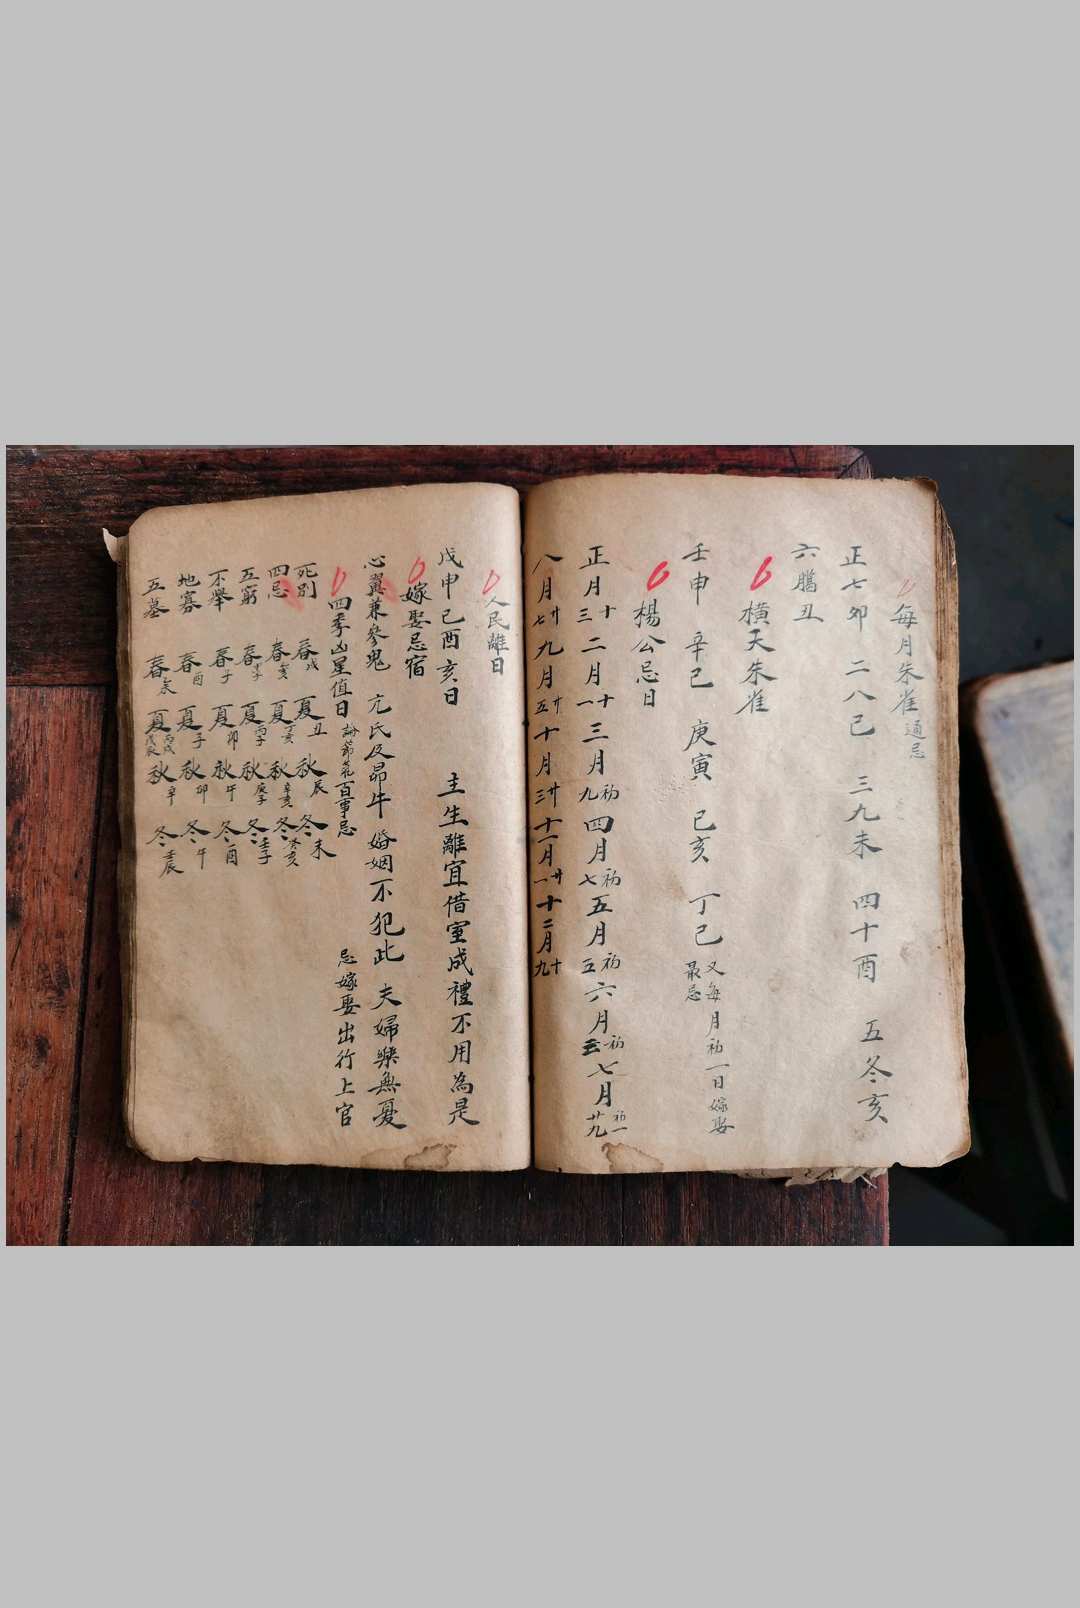 每月朱雀 通忌
正七卯 二八巳 三九未 四十酉 五冬亥
六臘丑
橫天朱雀
壬申 辛巳 庚寅 己亥 丁巳 又每月初一日嫁娶最忌
楊公忌日
正月十三 二月十一 三月初九 四月初七 五月初五 六月初三 七月初一廿九
八月廿七 九月廿五 十月廿三 十一月廿一 十二月十九
人民離日
戊申己酉亥日 主生離宜借室成禮不用為是
嫁娶忌宿
心翼兼參鬼 亢氐及昴牛 婚姻不犯此 夫婦樂無憂
四季凶星值日 論節氣百事忌 忌嫁娶出行上官
死別 春戌 夏丑 秋辰 冬未
四忌 春亥 夏丁亥 秋辛亥 冬癸亥
五窮 春子 夏丙子 秋庚子 冬壬子
不舉 春子 夏卯 秋午 冬酉
地寡 春酉 夏子 秋卯 冬午
五墓 春 夏丙戌戊辰 秋辛 冬壬辰